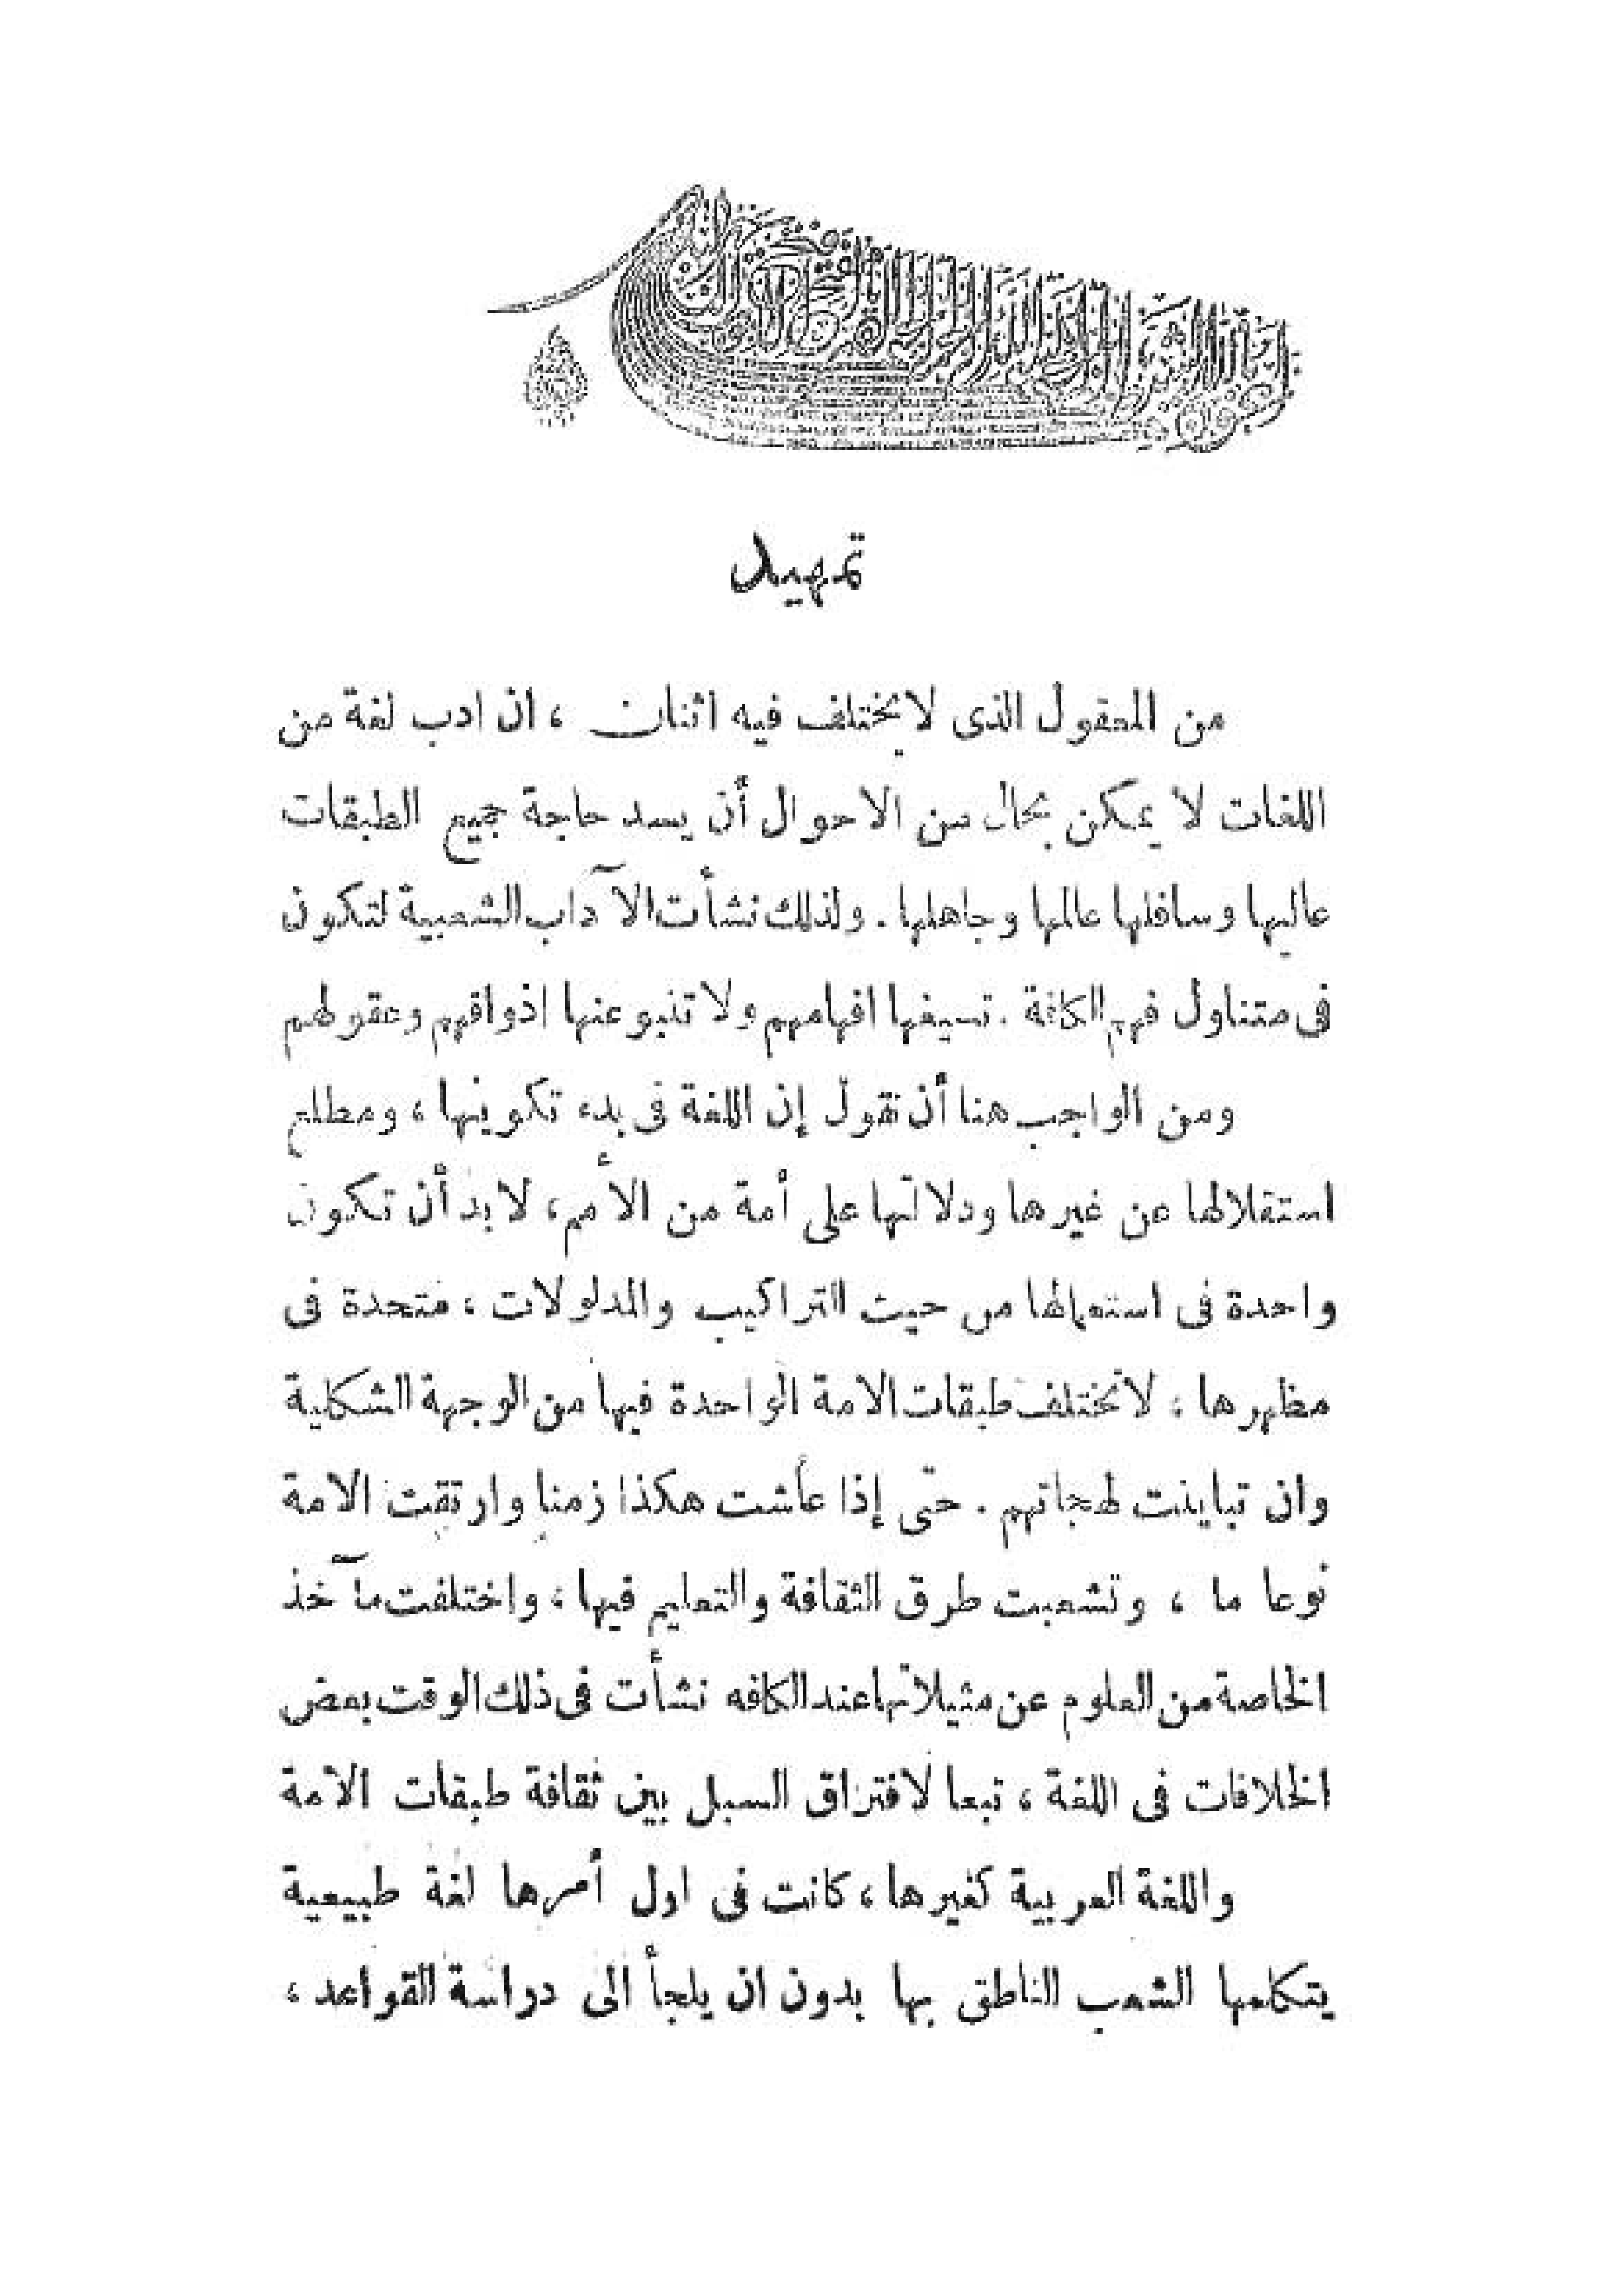 تمهيد
من المعقول الذى لا يختلف فيه اثنان ، ان ادب لغة من
اللغات لا يمكن بحال من الاحوال أن يسد حاجة جميع الطبقات
عاليها وسافلها عالمها وجاهلها . ولذلك نشأت الآداب الشعبية لتكون
فى متناول فهم الكافة . تسيغها افهامهم ولا تنبو عنها اذواقهم وعقولهم
ومن الواجب هنا أن نقول إن اللغة فى بدء تكوينها ، ومطلع
استقلالها عن غيرها ودلالتها على أمة من الأمم ، لا بد أن تكون
واحدة فى استعمالها من حيث التراكيب والمدلولات ، متحدة فى
مظهرها ، لا تختلف طبقات الامة الواحدة فيها من الوجهة الشكلية
وان تباينت لهجاتهم . حتى إذا عاشت هكذا زمنا وارتقت الامة
نوعا ما ، وتشعبت طرق الثقافة والتعليم فيها ، واختلفت مآخذ
الخاصة من العلوم عن مثيلاتها عند الكافه نشأت فى ذلك الوقت بعض
الخلافات فى اللغة ، تبعا لافتراق السبل بين ثقافة طبقات الامة
واللغة العربية كغيرها ، كانت فى اول أمرها لغة طبيعية
يتكلمها الشعب الناطق بها بدون ان يلجأ الى دراسة القواعد ،